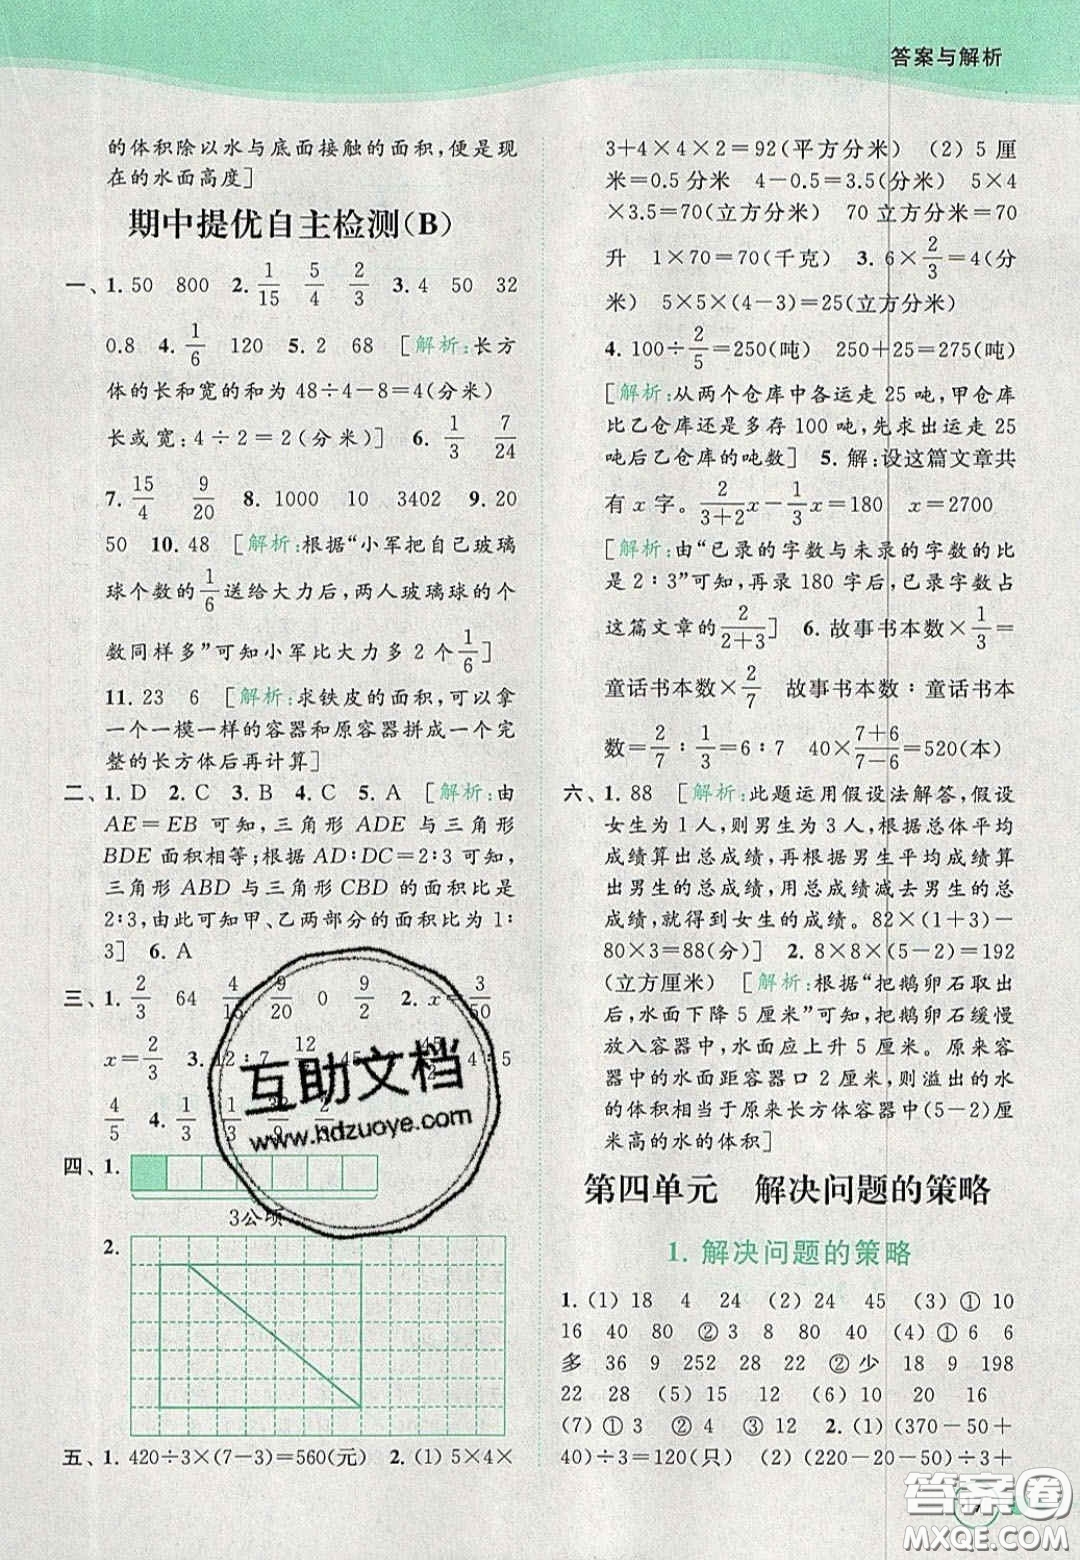 答案与解析
的体积除以水与底面接触的面积,便是现
在的水面高度]
期中提优自主检测(B)
一、1. 50 800 2. 1/15 5/4 2/3 3. 4 50 32
0.8 4. 1/6 120 5. 2 68 [解析:长方
体的长和宽的和为 48÷4-8=4(分米)
长或宽:4÷2=2(分米)] 6. 1/3 7/24
7. 15/4 9/20 8. 1000 10 3402 9. 20
50 10. 48 [解析:根据“小军把自己玻璃
球个数的1/6送给大力后,两人玻璃球的个
数同样多”可知小军比大力多 2 个1/6]
11. 23 6 [解析:求铁皮的面积,可以拿
一个一模一样的容器和原容器拼成一个完
整的长方体后再计算]
二、1. D 2. C 3. B 4. C 5. A [解析:由
AE=EB 可知,三角形 ADE 与三角形
BDE 面积相等;根据 AD∶DC=2∶3 可知,
三角形 ABD 与三角形 CBD 的面积比是
2∶3,由此可知甲、乙两部分的面积比为 1∶
3] 6. A
三、1. 2/3 64 4/15 9/20 0 9/2 2. x=3/50
x=2/3 3. 12∶7 12 45 45/2 4∶5
4/5 4. 1/3 1/3
四、1.
3公顷
2.
五、1. 420÷3×(7-3)=560(元) 2. (1) 5×4×
3+4×4×2=92(平方分米) (2) 5 厘
米=0.5 分米 4-0.5=3.5(分米) 5×4
×3.5=70(立方分米) 70 立方分米=70
升 1×70=70(千克) 3. 6×2/3=4(分
米) 5×5×(4-3)=25(立方分米)
4. 100÷2/5=250(吨) 250+25=275(吨)
[解析:从两个仓库中各运走 25 吨,甲仓库
比乙仓库还是多存 100 吨,先求出运走 25
吨后乙仓库的吨数] 5. 解:设这篇文章共
有 x 字。2/(3+2)x-1/3x=180 x=2700
[解析:由“已录的字数与未录的字数的比
是 2∶3”可知,再录 180 字后,已录字数占
这篇文章的2/(2+3)] 6. 故事书本数×1/3=
童话书本数×2/7 故事书本数∶童话书本
数=2/7∶1/3=6∶7 40×(7+6)/(7-6)=520(本)
六、1. 88 [解析:此题运用假设法解答,假设
女生为 1 人,则男生为 3 人,根据总体平均
成绩算出总成绩,再根据男生平均成绩算
出男生的总成绩,用总成绩减去男生的总
成绩,就得到女生的成绩。82×(1+3)-
80×3=88(分)] 2. 8×8×(5-2)=192
(立方厘米) [解析:根据“把鹅卵石取出
后,水面下降 5 厘米”可知,把鹅卵石缓慢
放入容器中,水面应上升 5 厘米。原来容
器中的水面距容器口 2 厘米,则溢出的水
的体积相当于原来长方体容器中(5-2)厘
米高的水的体积]
第四单元 解决问题的策略
1. 解决问题的策略
1. (1) 18 4 24 (2) 24 45 (3) ① 10
16 40 80 ② 3 8 80 40 (4) ① 6 6
多 36 9 252 28 22 ② 少 18 9 198
22 28 (5) 15 12 (6) 10 20 16
(7) ① 3 ② 4 ③ 12 2. (1) (370-50+
40)÷3=120(只) (2) (220-20-50)÷3+
互助文档
www.hdzuoye.com
答案圈
MXQE.COM